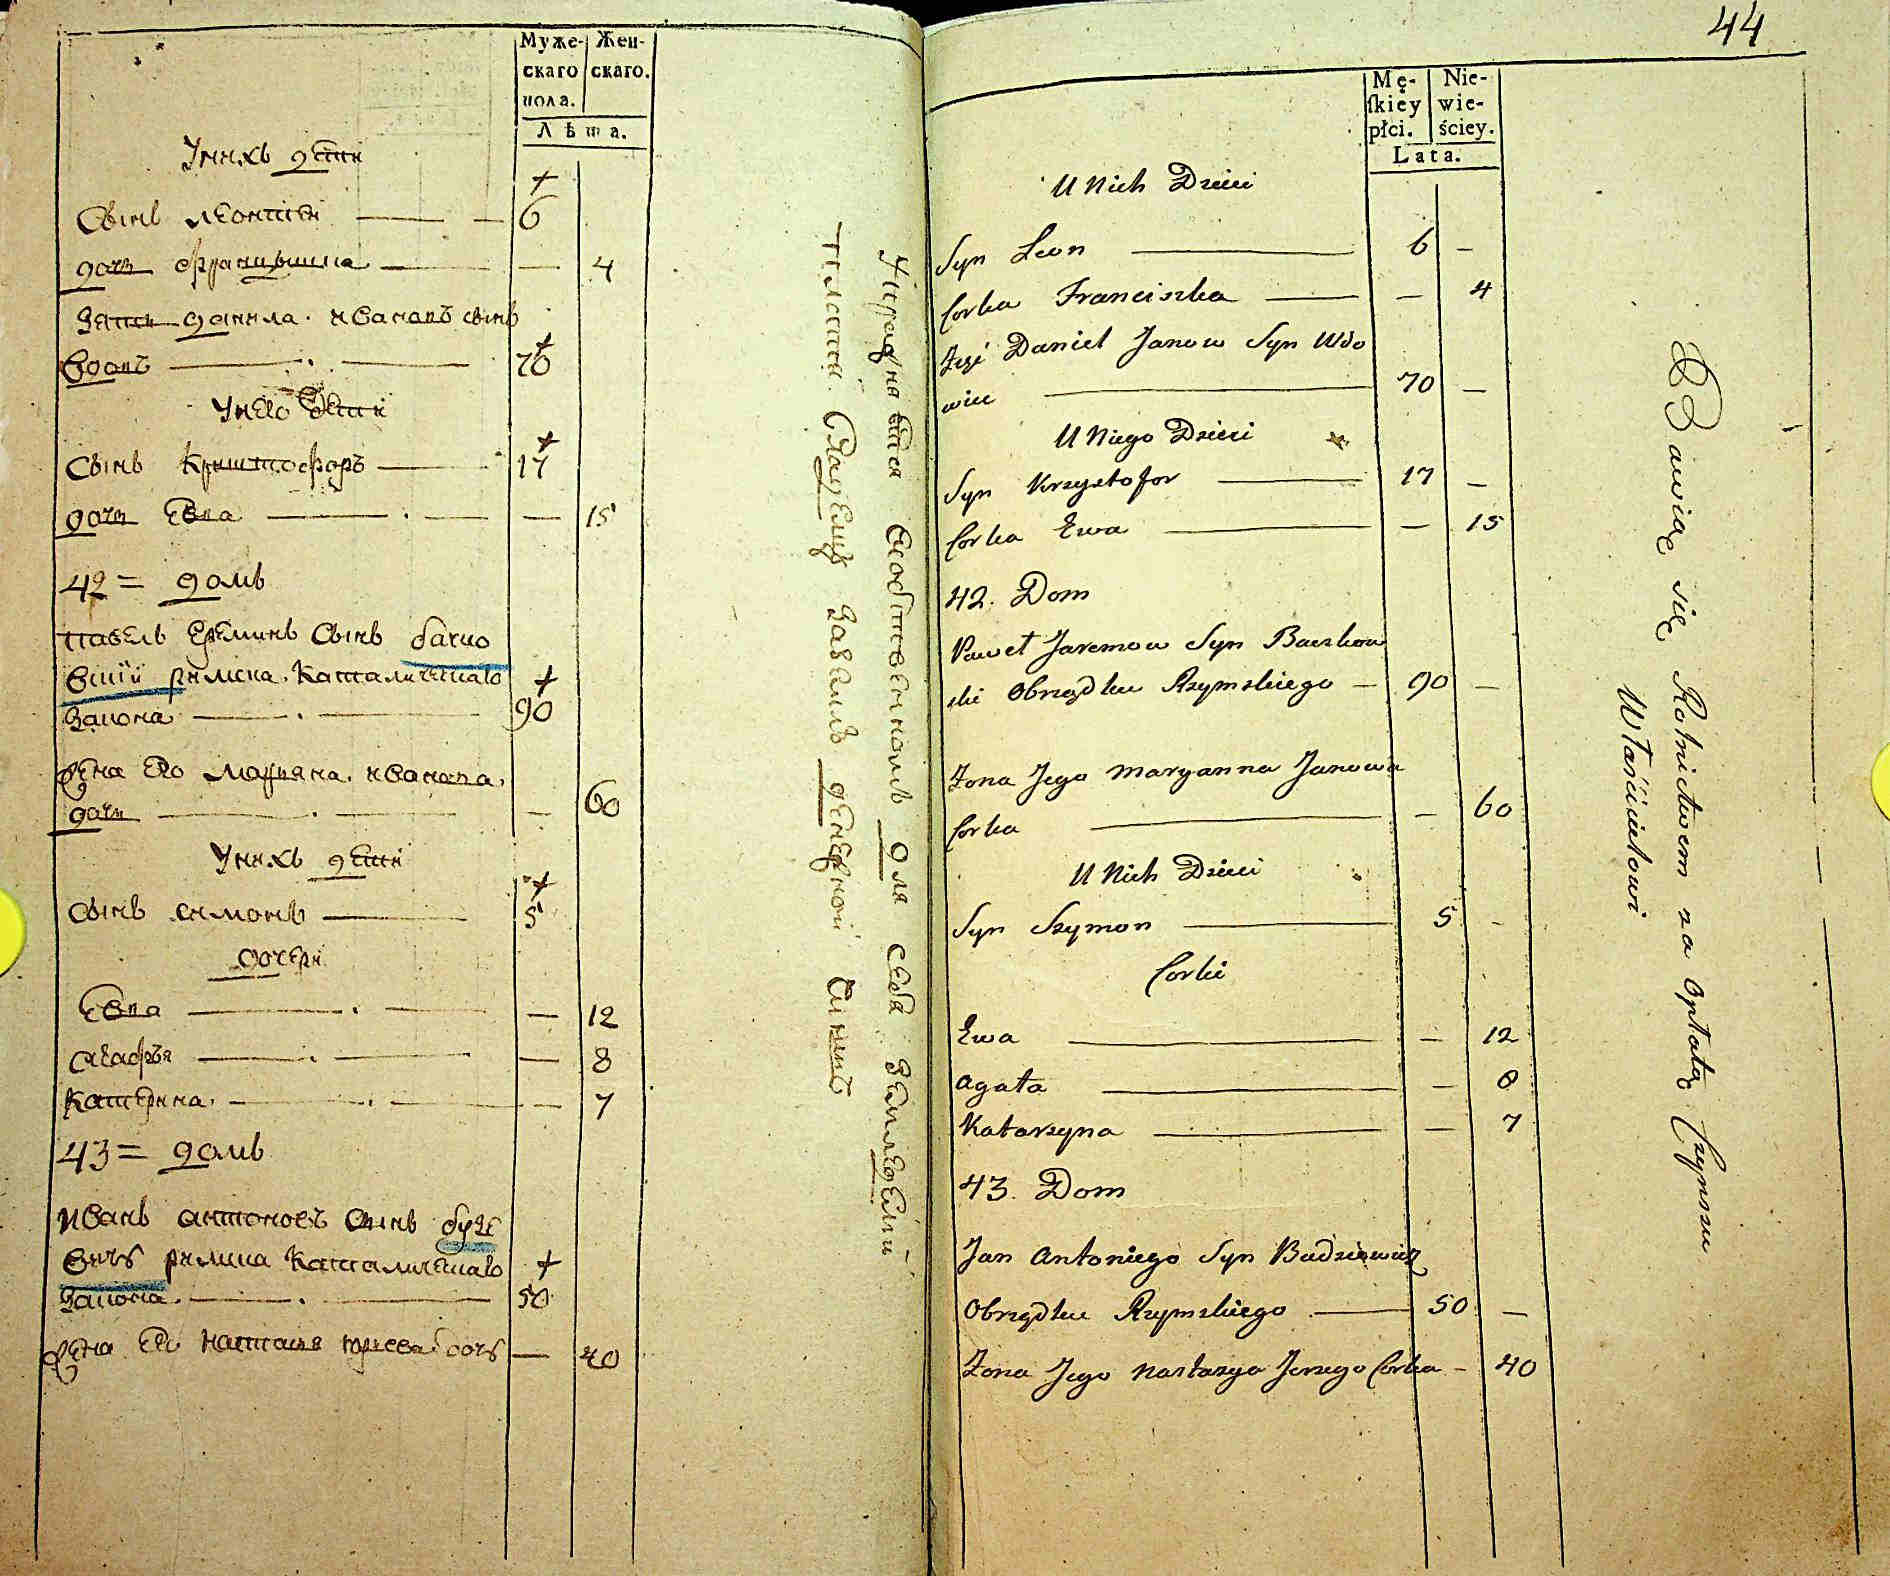 Муже-
скаго
пола.
Жен-
скаго.
Лѣта.
У нихъ дети
Сынъ леонтей — 6
дочь францишка — 4
Зять данила ивановъ сынъ
вдовъ — 70
У него дети
Сынъ Криштофоръ — 17
дочь Евва — 15
42 = домъ
павелъ Ереминъ Сынъ бачко
вский римска. Католическаго
Закона — 90
жена Его марьяна. иванова.
дочь — 60
У нихъ дети
Сынъ симонъ — 5
дочери
Евва — 12
агафья — 8
Катерина. — 7
43 = домъ
иванъ антоновъ Сынъ будзе
вичь римска Католическаго
Закона. — 50
жена Его настасья юрьева дочь — 40
для себя земледелий
платя. владелцу
44
Mę-
ſkiey
płci.
Nie-
wie-
ściey.
Lata.
U Nich Dzieci
Syn Leon — 6 —
Corka Franciszka — 4
Zęć Daniel Janow Syn Wdo
wiec — 70 —
U Niego Dzieci
Syn Krzysztofor — 17 —
Corka Ewa — 15
42. Dom
Paweł Jaremow Syn Baczkow
ski Obrządku Rzymskiego — 90 —
Zona Jego Maryanna Janowa
Corka — 60
U Nich Dzieci
Syn Szymon — 5 -
Corki
Ewa — 12
Agata — 8
Katarzyna — 7
43. Dom
Jan Antoniego Syn Budziewicz
Obrządku Rzymskiego — 50 —
Zona Jego Nastazya Jerzego Corka — 40
Bawią się Rolnictwem za Opłatą Czynszu
Właścicielowi